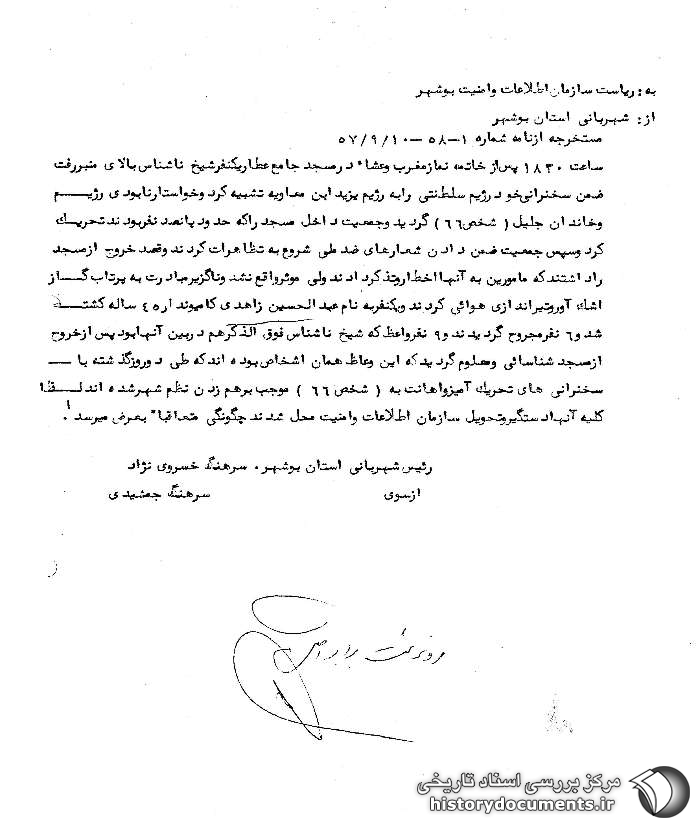 به: ریاست سازمان اطلاعات وامنیت بوشهر
از: شهربانی استان بوشهر
مستخرجه ازنامه شماره ۱-۵۸-۵۷/۹/۱۰
ساعت ۱۸۳۰ پس از خاتمه نمازمغرب وعشاء درمسجد جامع عطار یکنفرشیخ ناشناس بالای منبررفت
ضمن سخنرانی خود رژیم سلطنتی رابه رژیم یزید ابن معاویه تشبیه کرد وخواستارنابودی رژیم
وخاندان جلیل (شخص ۶۶) گردید وجمعیت داخل مسجد راکه حدود پانصد نفربودند تحریک
کرد وسپس جمعیت ضمن دادن شعارهای ضد ملی شروع به تظاهرات کردند وقصد خروج ازمسجد
راداشتند که مامورین به آنها اخطاروتذکردادند ولی موثرواقع نشد وناگزیرمبادرت به پرتاب گاز
اشک آوروتیراندازی هوائی کردند ویکنفربه نام عبدالحسین زاهدی کامیوندار ۴۰ ساله کشته
شد و۶ نفرمجروح گردیدند و۹ نفرواعظ که شیخ ناشناس فوق الذکرهم دربین آنهابود پس ازخروج
ازمسجد شناسائی ومعلوم گردید که این وعاظ همان اشخاص بوده اند که طی دوروزگذشته با
سخنرانی های تحریک آمیزواهانت به (شخص ۶۶) موجب برهم زدن نظم شهرشده اند لذا
کلیه آنهادستگیروتحویل سازمان اطلاعات وامنیت محل شدند چگونگی متعاقباً بعرض میرسد.
رئیس شهربانی استان بوشهر. سرهنگ خسروی نژاد
ازسوی سرهنگ جمشیدی
برابر اصل
مرکز بررسی اسناد تاریخی
historydocuments.ir